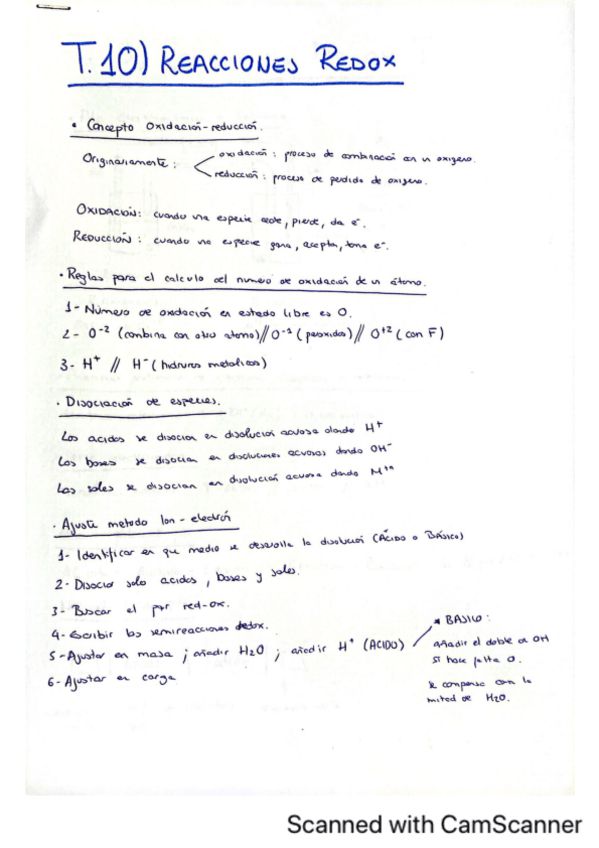 T.10) REACCIONES REDOX
• Concepto oxidación-reducción.
Originariamente: oxidación: proceso de combinación con un oxigeno.
reducción: proceso de perdida de oxigeno.
OXIDACIÓN: cuando una especie cede, pierde, da e⁻.
REDUCCIÓN: cuando una especie gana, acepta, toma e⁻.
· Reglas para el calculo del numero de oxidación de un átomo.
1- Número de oxidación en estado libre es 0.
2- O⁻² (combina con otro atomo) // O⁻¹ (peroxidos) // O⁺² (con F)
3- H⁺ // H⁻ (hidruros metalicos)
· Disociación de especies.
Los acidos se disocian en disolución acuosa dando H⁺
Las bases se disocian en disoluciones acuosas dando OH⁻
Las sales se disocian en disolución acuosa dando M⁺ⁿ
· Ajuste metodo Ion-electrón
1- Identificar en que medio se desarrolla la disolución (ÁCIDO o BÁSICO)
2- Disocio solo acidos, bases y sales.
3- Buscar el par red-ox.
4- Escribir las semireacciones redox.
5- Ajustar en masa ; añadir H₂O ; añadir H⁺ (ACIDO)
6- Ajustar en carga
* BASICO:
añadir el doble de OH
si hace falta O.
Se compensa con la
mitad de H₂O.
Scanned with CamScanner